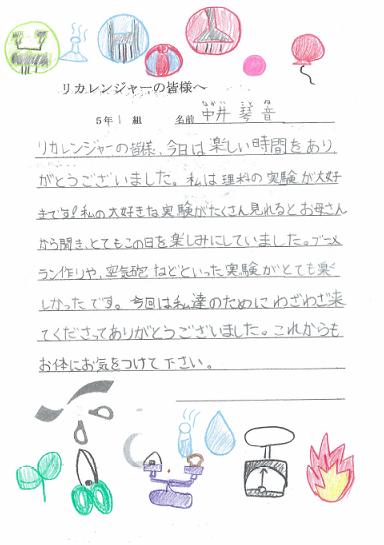 リカレンジャーの皆様へ
5年1組 名前 中井 琴音
リカレンジャーの皆様、今日は楽しい時間をあり
がとうございました。私は理科の実験が大好
きです!私の大好きな実験がたくさん見れるとお母さん
から聞き、とてもこの日を楽しみにしていました。ブーメ
ラン作りや、空気砲などといった実験がとても楽
しかったです。今回は私達のためにわざわざ来
てくださってありがとうございました。これからも
お体にお気をつけて下さい。